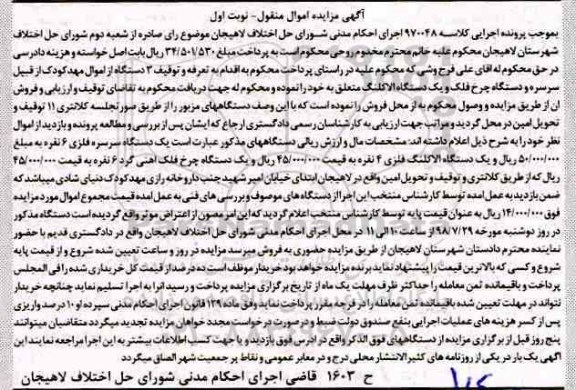 آگهی مزایده اموال منقول- نوبت اول
بموجب پرونده اجرایی کلاسه ۹۷۰۰۴۸ اجرای احکام مدنی شورای حل اختلاف لاهیجان موضوع رای صادره از شعبه دوم شورای حل اختلاف
شهرستان لاهیجان محکوم علیه خانم محترم مخدوم روحی محکوم است به پرداخت مبلغ ۳۴/۵۰۱/۵۳۰ ریال بابت اصل خواسته و هزینه دادرسی
در حق محکوم له اقای علی فرح وشی که محکوم علیه در راستای پرداخت محکوم به اقدام به تعرفه و توقیف ۳ دستگاه از اموال مهدکودک از قبیل
سرسره و چرخ فلک و یک دستگاه الاکلنگ متعلق به خود را نموده و محکوم له جهت دریافت محکوم به تقاضای توقیف و ارزیابی و فروش
ان از طریق مزایده و وصول محکوم به از محل فروش را نموده است که با این وصف دستگاههای مزبور را از طریق صورتجلسه کلانتری ۱۱ توقیف و
تحویل امین در محل گردید و مراتب جهت ارزیابی به کارشناسان رسمی دادگستری ارجاع که ایشان پس از بررسی و مطالعه پرونده و بازدید از اموال
نظر خود را به شرح ذیل اعلام داشته اند: مشخصات مال و ارزش ریالی دستگاههای مذکور عبارت است یک دستگاه سرسره فلزی ۶ نفره به مبلغ
۵۰/۰۰۰/۰۰۰ ریال و یک دستگاه الاکلنگ فلزی ۴ نفره به قیمت ۴۵/۰۰۰/۰۰۰ ریال و یک دستگاه چرخ فلک اهنی گرد ۶ نفره به قیمت ۴۵/۰۰۰/۰۰۰
ریال که از طریق کلانتری و توقیف و تحویل امین واقع در لاهیجان ابتدای خیابان امیر شهید جنب داروخانه رازی مهدکودک دنیای شادی میباشد که
ضمن بازدید به عمل امده توسط کارشناس منتخب این اجرا از دستگاه های موصوف و بررسی های فنی به عمل امده قیمت مجموع اموال مورد مزایده
فوق ۱۴/۰۰۰/۰۰۰ ریال به عنوان قیمت پایه توسط کارشناس منتخب اعلام گردید که این امر مصون از اعتراض موثر واقع گردیده است دستگاه مذکور
در روز دوشنبه مورخه ۹۸/۷/۲۹ از ساعت ۱۰ الی ۱۱ در محل اجرای احکام مدنی شورای حل اختلاف لاهیجان واقع در دادگستری قدیم با حضور
نماینده محترم دادستان شهرستان لاهیجان از طریق مزایده حضوری به فروش میرسد مزایده در روز و ساعت تعیین شده شروع و از قیمت پایه
شروع و کسی که بالاترین قیمت را پیشنهاد نماید برنده مزایده خواهد بود خریدار موظف است ده درصد از قیمت کل خریداری شده را فی المجلس
پرداخت و باقیمانده ثمن معامله را حداکثر ظرف مهلت یک ماه از تاریخ برگزاری مزایده پرداخت و رسید انرا به اجرا تسلیم نماید چنانچه خریدار
نتواند در مهلت تعیین شده باقیمانده ثمن معامله را در فرجه مقرر پرداخت نماید وفق ماده ۱۳۹ قانون اجرای احکام مدنی سپرده او ۱۰ درصد واریزی
پس از کسر هزینه های عملیات اجرایی بنفع صندوق دولت ضبط و در صورت درخواست مجدد خواهان مزایده تجدید میگردد متقاضیان میتوانند
پنج روز قبل از برگزاری مزایده از دستگاههای فوق الذکر واقع در ادرس فوق بازدید و یا جهت کسب اطلاعات بیشتر به این اجرا مراجعه نمایند این
آگهی یک بار در یکی از روزنامه های کثیر الانتشار محلی درج و در معابر عمومی و نقاط پر جمعیت شهر الصاق میگردد
ح ۱۶۰۳ قاضی اجرای احکام مدنی شورای حل اختلاف لاهیجان